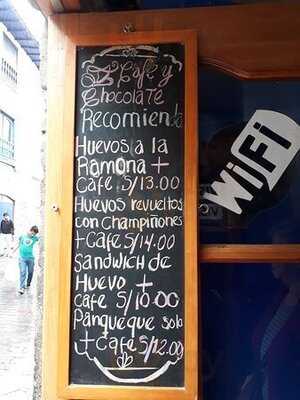 Café y
Chocolate
Recomienda
Huevos a la
Ramona +
Cafe S/13.00
Huevos revueltos
con champiñones
+ Cafe S/14.00
Sandwich de
Huevo +
Cafe S/10.00
Panqueque solo
+ Cafe S/12.00
WiFi